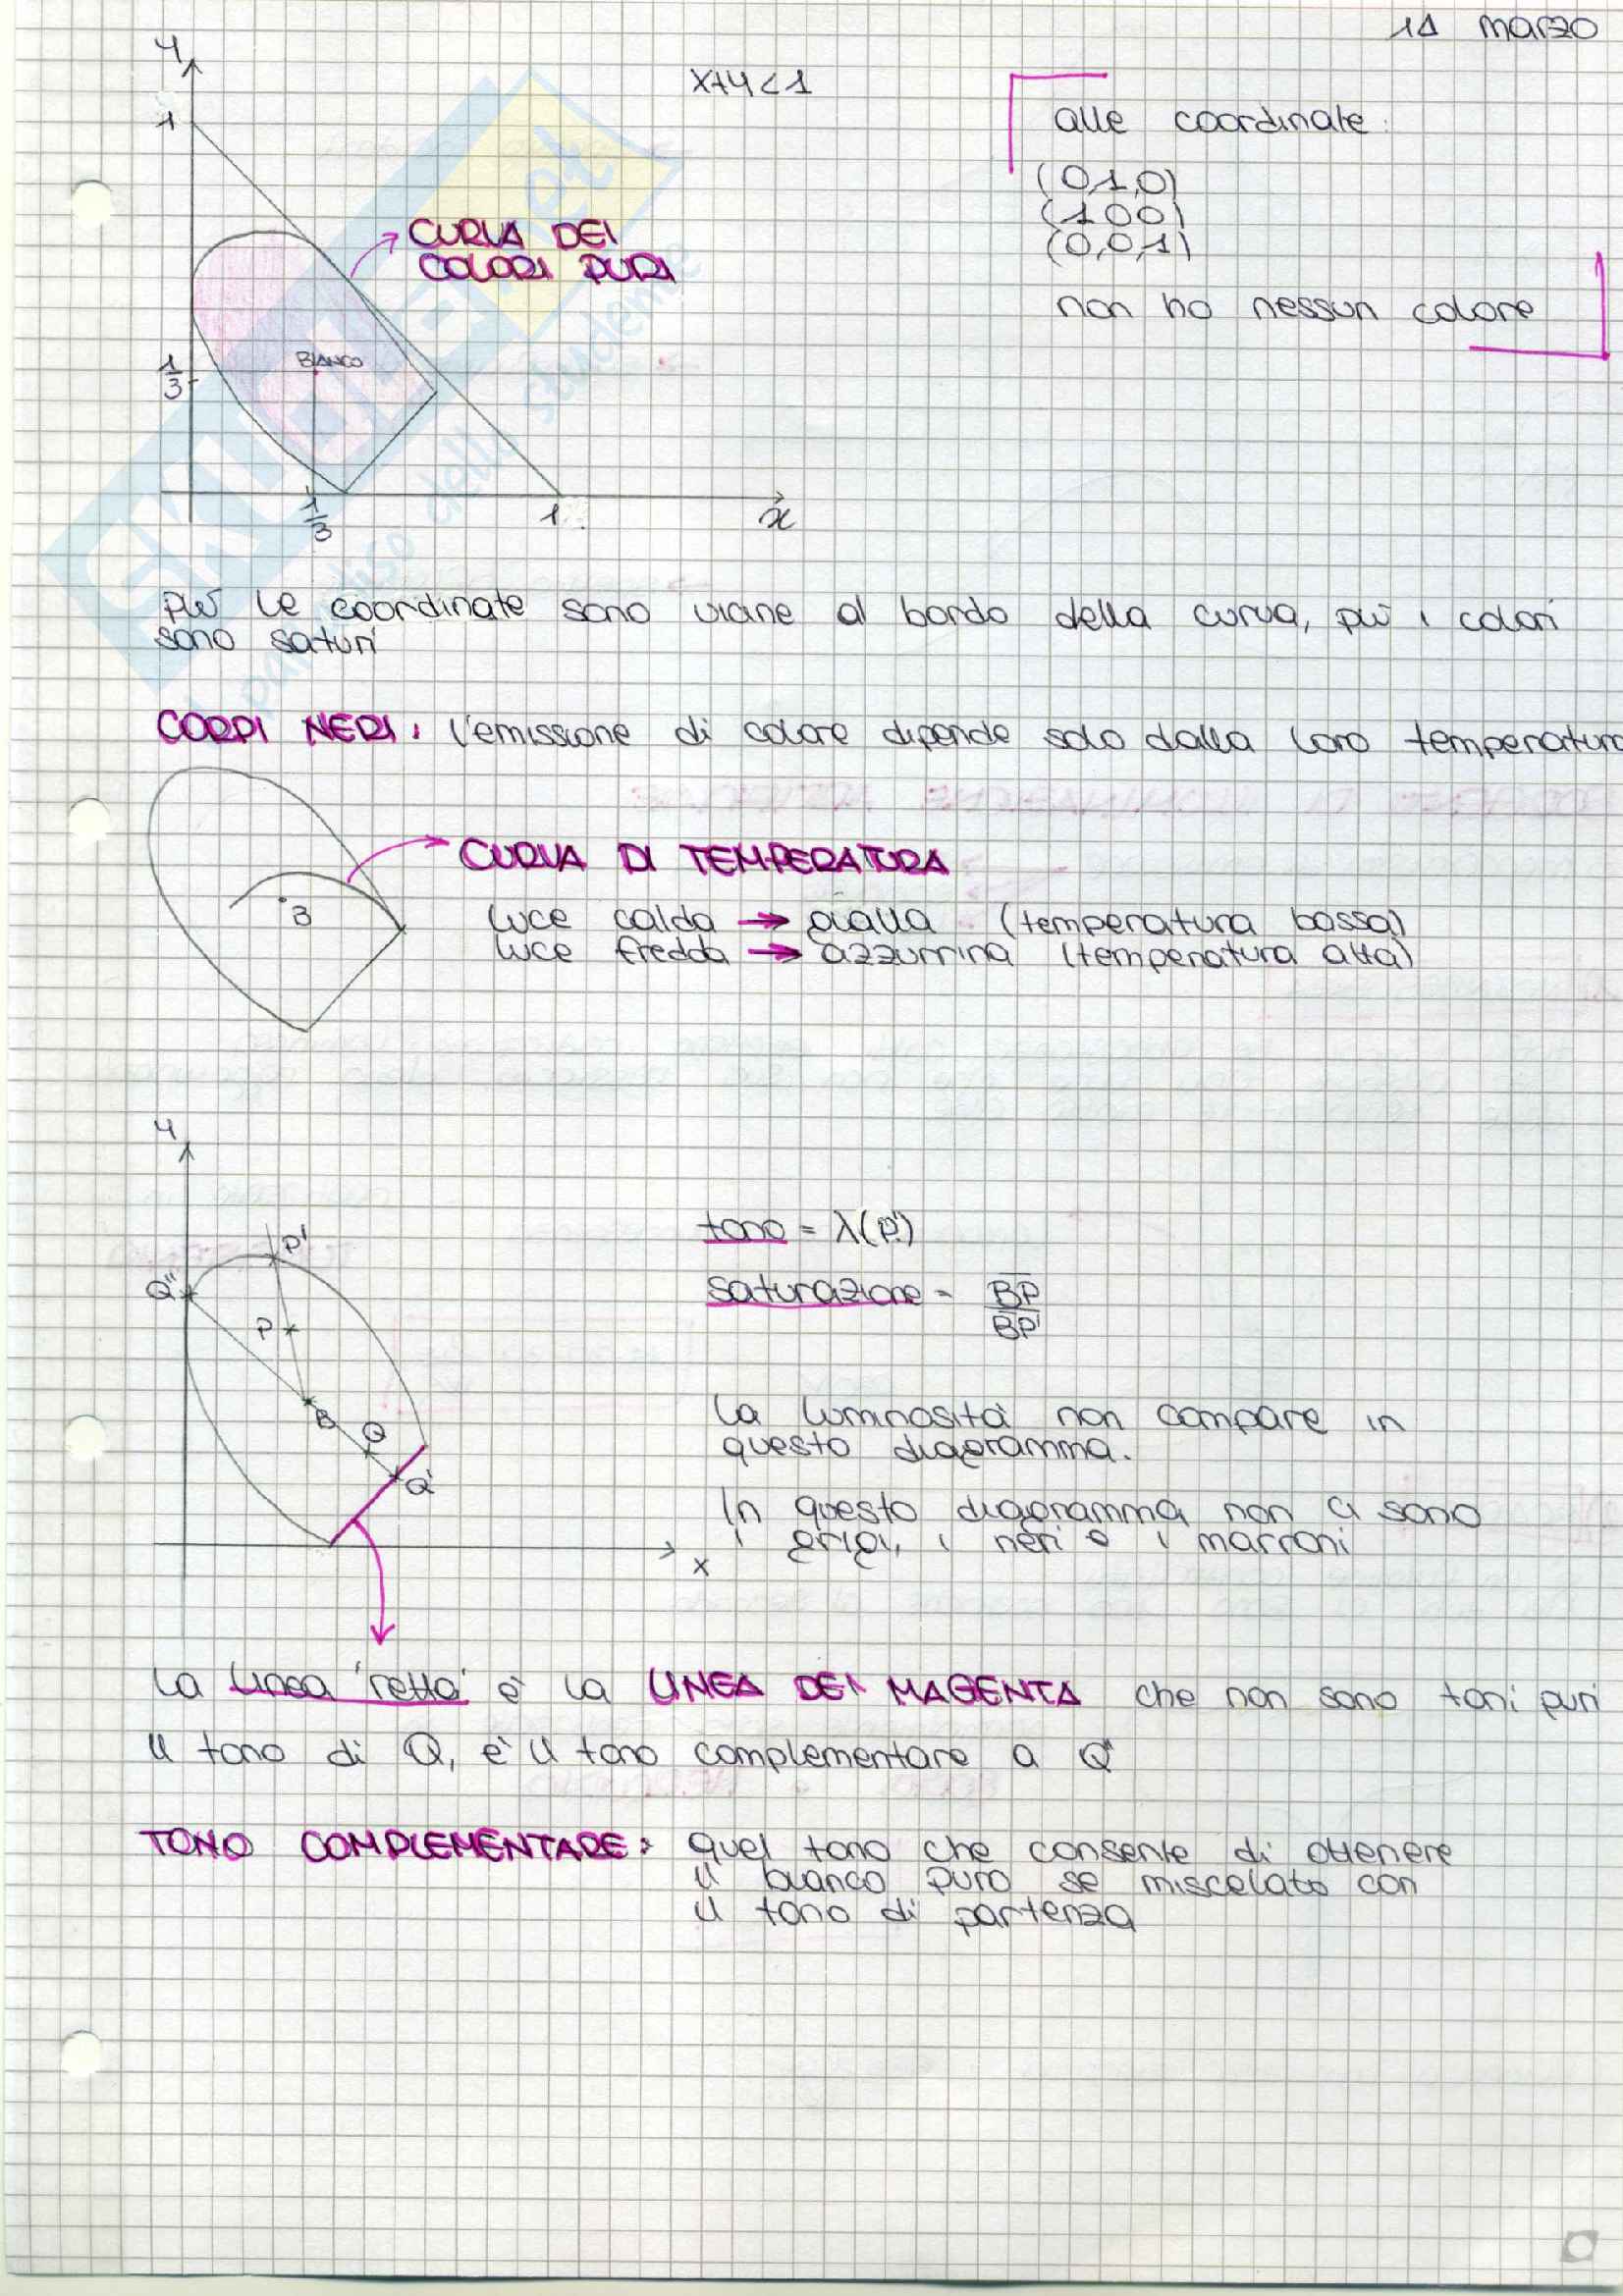 14 marzo
y
x+y<1
1
alle coordinate:
(0,1,0)
(1 0 0)
(0,0,1)
non ho nessun colore
CURVA DEI
COLORI PURI
BIANCO
1/3
1/3
1
x
più le coordinate sono vicine al bordo della curva, più i colori
sono saturi
CORPI NERI: l'emissione di colore dipende solo dalla loro temperatura
CURVA DI TEMPERATURA
B
luce calda → gialla (temperatura bassa)
luce fredda → azzurrina (temperatura alta)
y
P'
Q''
P
B
Q
Q'
x
tono = λ(P')
saturazione = BP/BP'
la luminosità non compare in
questo diagramma.
In questo diagramma non ci sono
i grigi, i neri e i marroni
la linea 'retta' è la LINEA DEI MAGENTA che non sono toni puri
il tono di Q, è il tono complementare a Q''
TONO COMPLEMENTARE: quel tono che consente di ottenere
il bianco puro se miscelato con
il tono di partenza